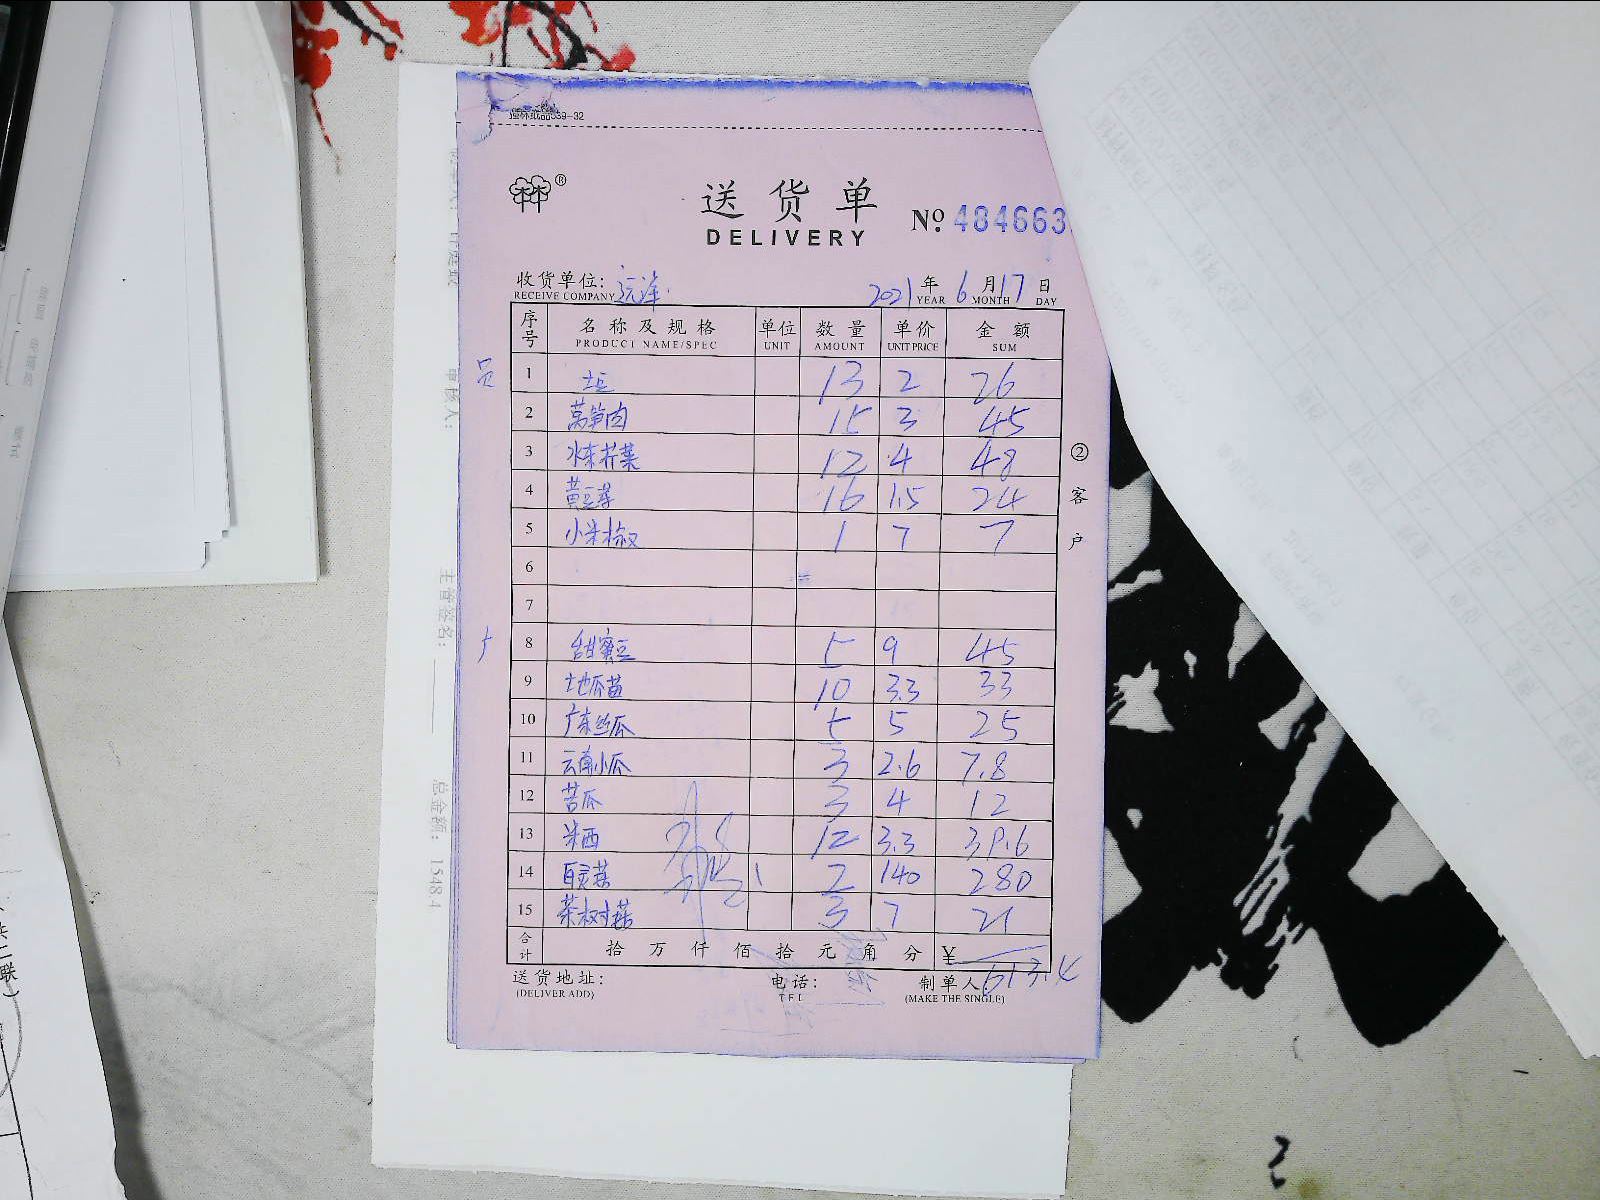 送货单
DELIVERY
№ 484663
收货单位: 远洋
RECEIVE COMPANY
2021 年 6 月 17 日
YEAR MONTH DAY
序号 名称及规格 单位 数量 单价 金额
PRODUCT NAME/SPEC UNIT AMOUNT UNIT PRICE SUM
员 1 土豆 13 2 26
2 莴笋肉 15 3 45
3 水东芥菜 12 4 48
4 黄豆芽 16 1.5 24
5 小米椒 1 7 7
6
7
8 甜蜜豆 5 9 45
9 地瓜苗 10 3.3 33
10 广东丝瓜 5 5 25
11 云南小瓜 3 2.6 7.8
12 苦瓜 3 4 12
13 米西 12 3.3 39.6
14 百灵菇 1 2 140 280
15 茶树菇 3 7 21
合计 拾 万 仟 佰 拾 元 角 分 ¥ 613.4
送货地址: 电话: 制单人
(DELIVER ADD) TEL (MAKE THE SINGLE)
② 客户
审核人:
主管签名:
总金额: 15484